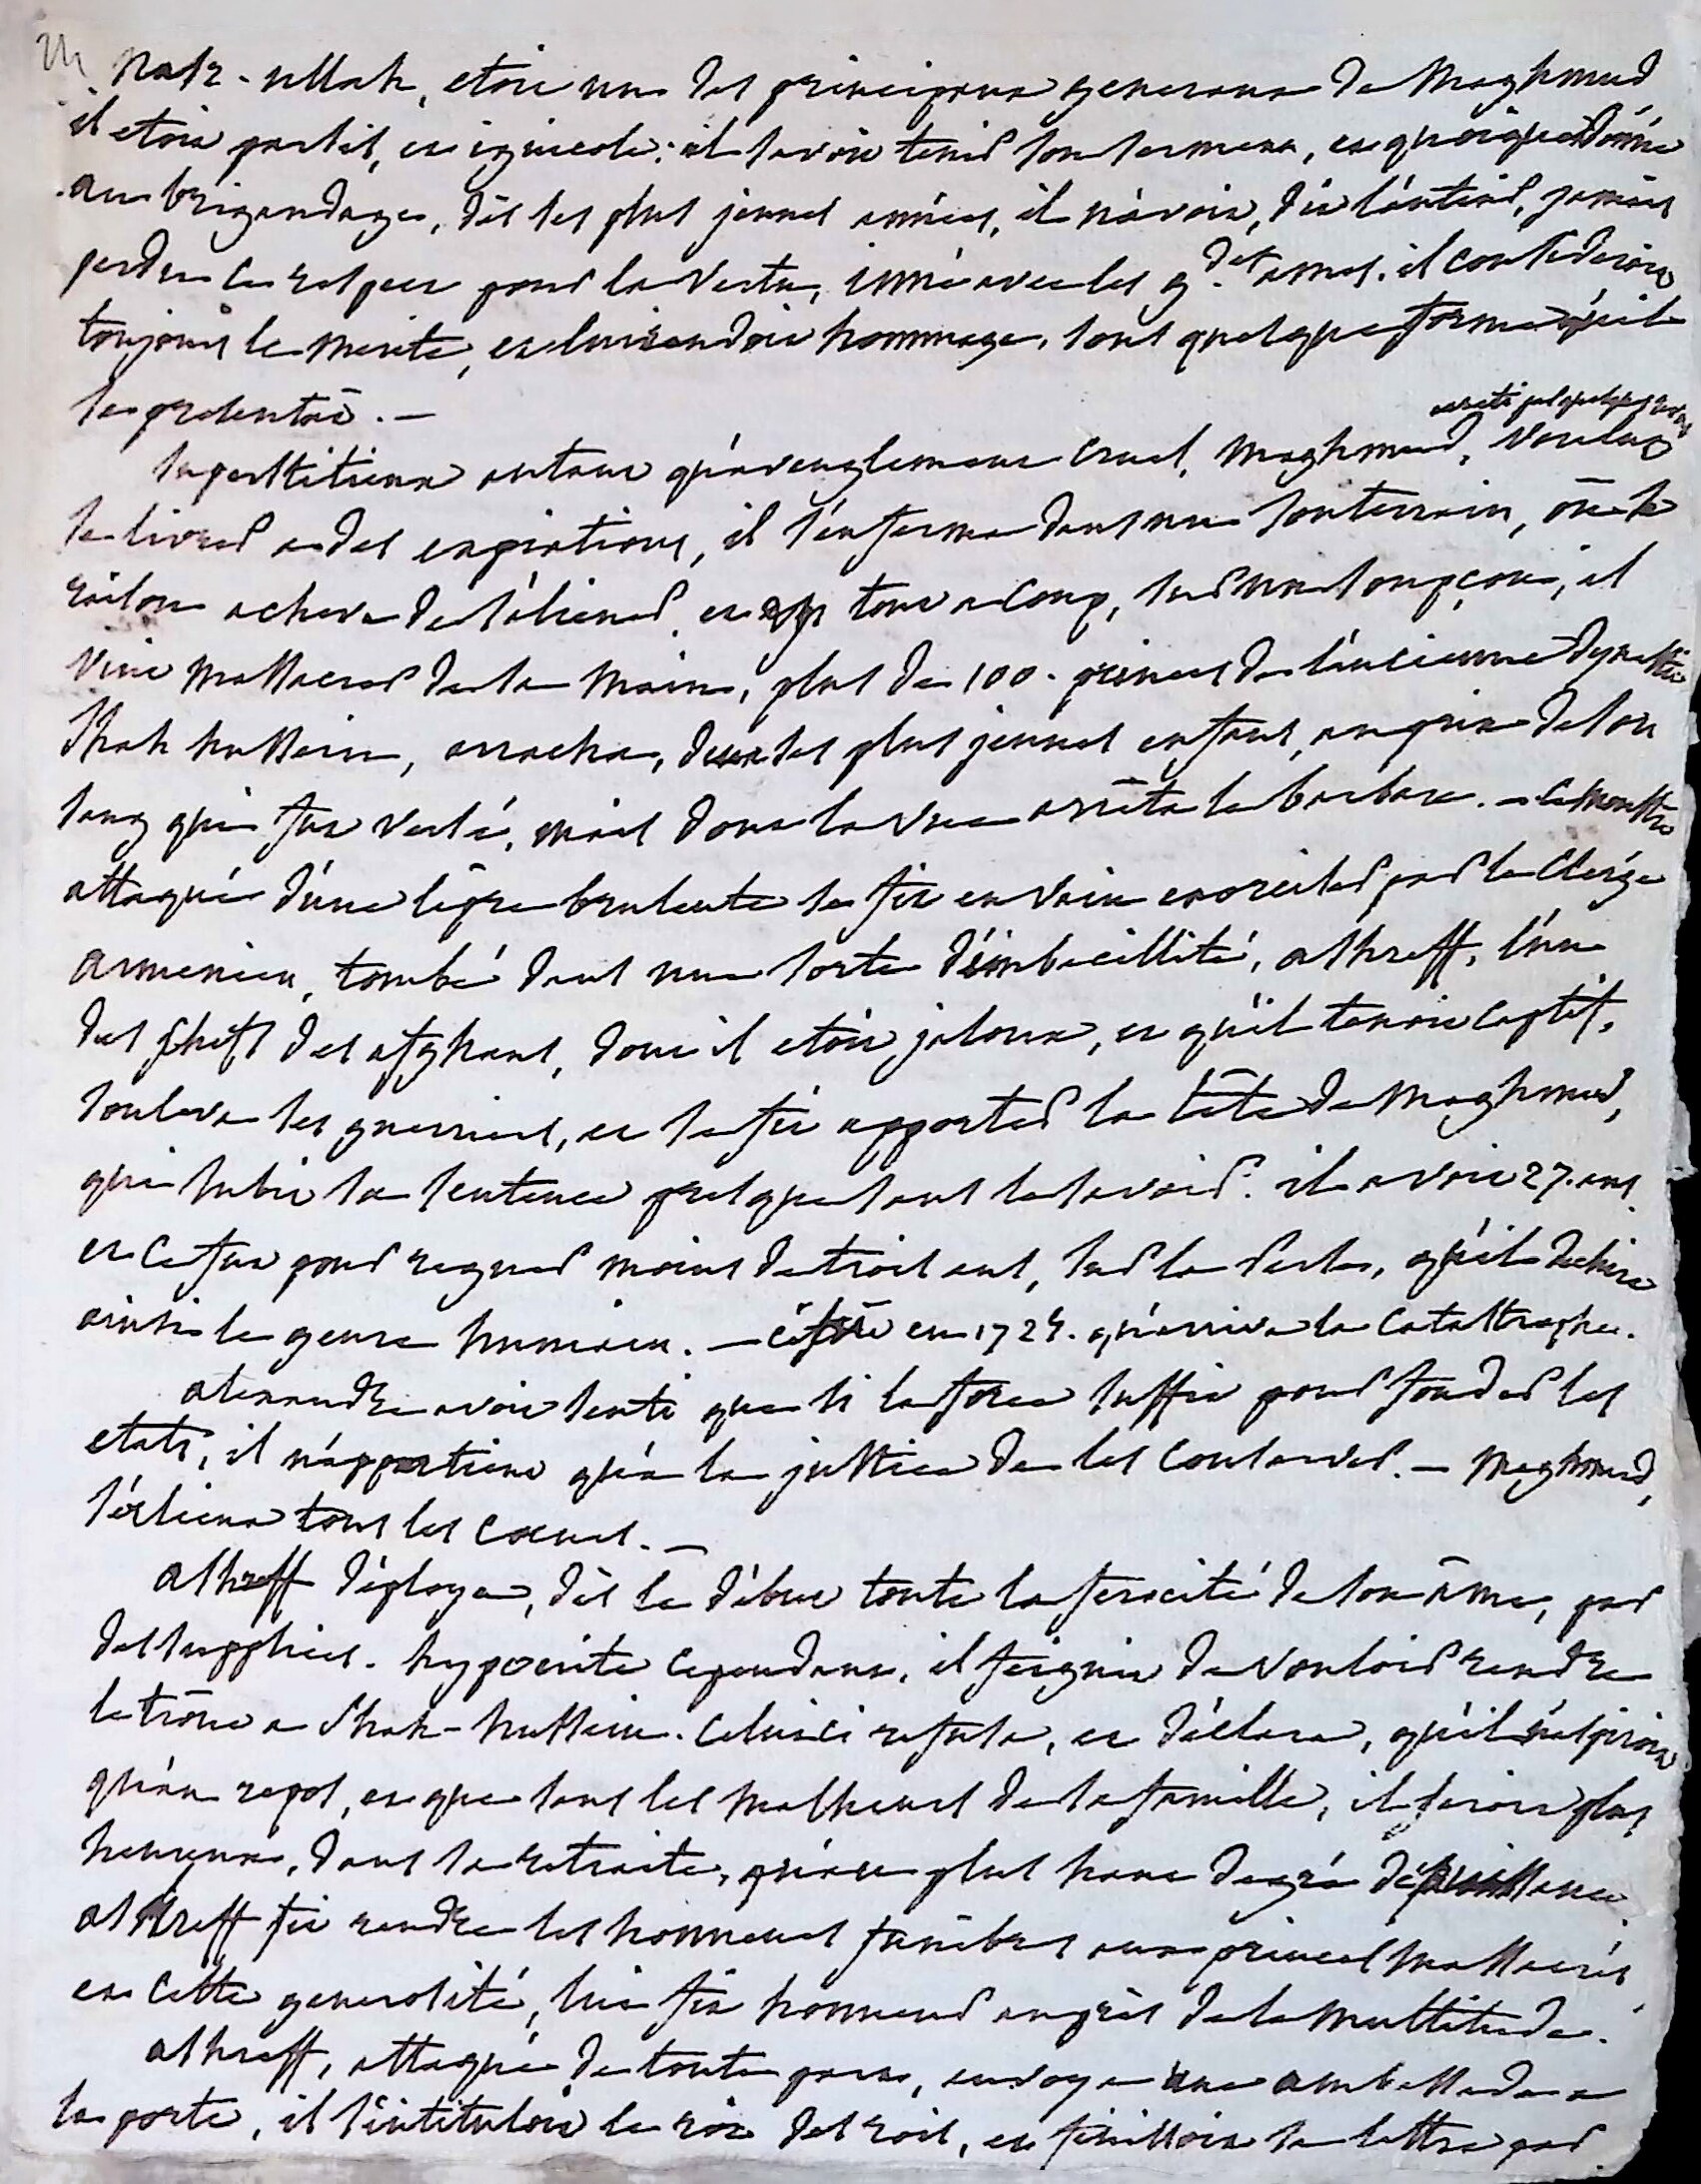 Nasr-ullah, etoit un des principaux generaux de Maghmud
il etoit parsis, et ignicole; il savoit tenir son serment, et quoique donné
au brigandage, dès ses plus jeunes années, il n'avoit, dis l'auteur, jamais
perdu le respect pour la vertu, inné avec les gdes ames. il consideroit
toujours le merite, et lui rendoit hommage, sous quelque forme qu'il
se presentât. —
Superstitieux autant qu'aveuglement cruel, Maghmud, voulut
se livrer a des expiations, il s'enferma dans un souterrain, où sa
raison acheva de s'aliener, et tout a coup, sur un soupçon, il
vint massacrer de sa main, plus de 100. princes de l'ancienne dynastie
Shah hussein, arracha, deux ses plus jeunes enfans, au prix de son
sang qui fut versé, mais dont la vue arrêta le barbare. — ce monstre
attaqué d'une lèpre brulente se fit en vain exorciser par le clergé
armenien, tombé dans une sorte d'imbecillité, ashreff, l'un
des chefs des afghans, dont il etoit jaloux, et qu'il tenoit captif,
souleva ses guerriers, et se fit apporter la tête de Maghmud,
qui subit sa sentence presque sans le savoir. il avoit 27. ans
et ce fut pour regner moins de trois ans, sur la Perse, qu'il dechira
ainsi le genre humain. — c'etoit en 1724. qu'arriva la catastrophe.
alexandre avoit senti que si la force suffit pour fonder les
etats, il n'appartient qu'a la justice de les conserver. — Maghmud,
s'aliena tous les coeurs. —
ashreff déploya, dès le début toute la ferocité de son âme, par
des supplices. hypocrite cependant, il feignit de vouloir rendre
le trône a Shah-hussein. Celui ci refusa, et déclara, qu'il n'aspiroit
qu'au repos, et que sans les malheurs de sa famille, il seroit plus
heureux, dans sa retraite, qu'au plus haut degré de puissance
ashreff fit rendre les honneurs funèbres aux princes massacrés,
et cette generosité, lui fit honneur auprès de la multitude.
ashreff, attaqué de toute part, envoya une ambassade a
la porte, il s'intituloit le roi des rois, et finissoit sa lettre par